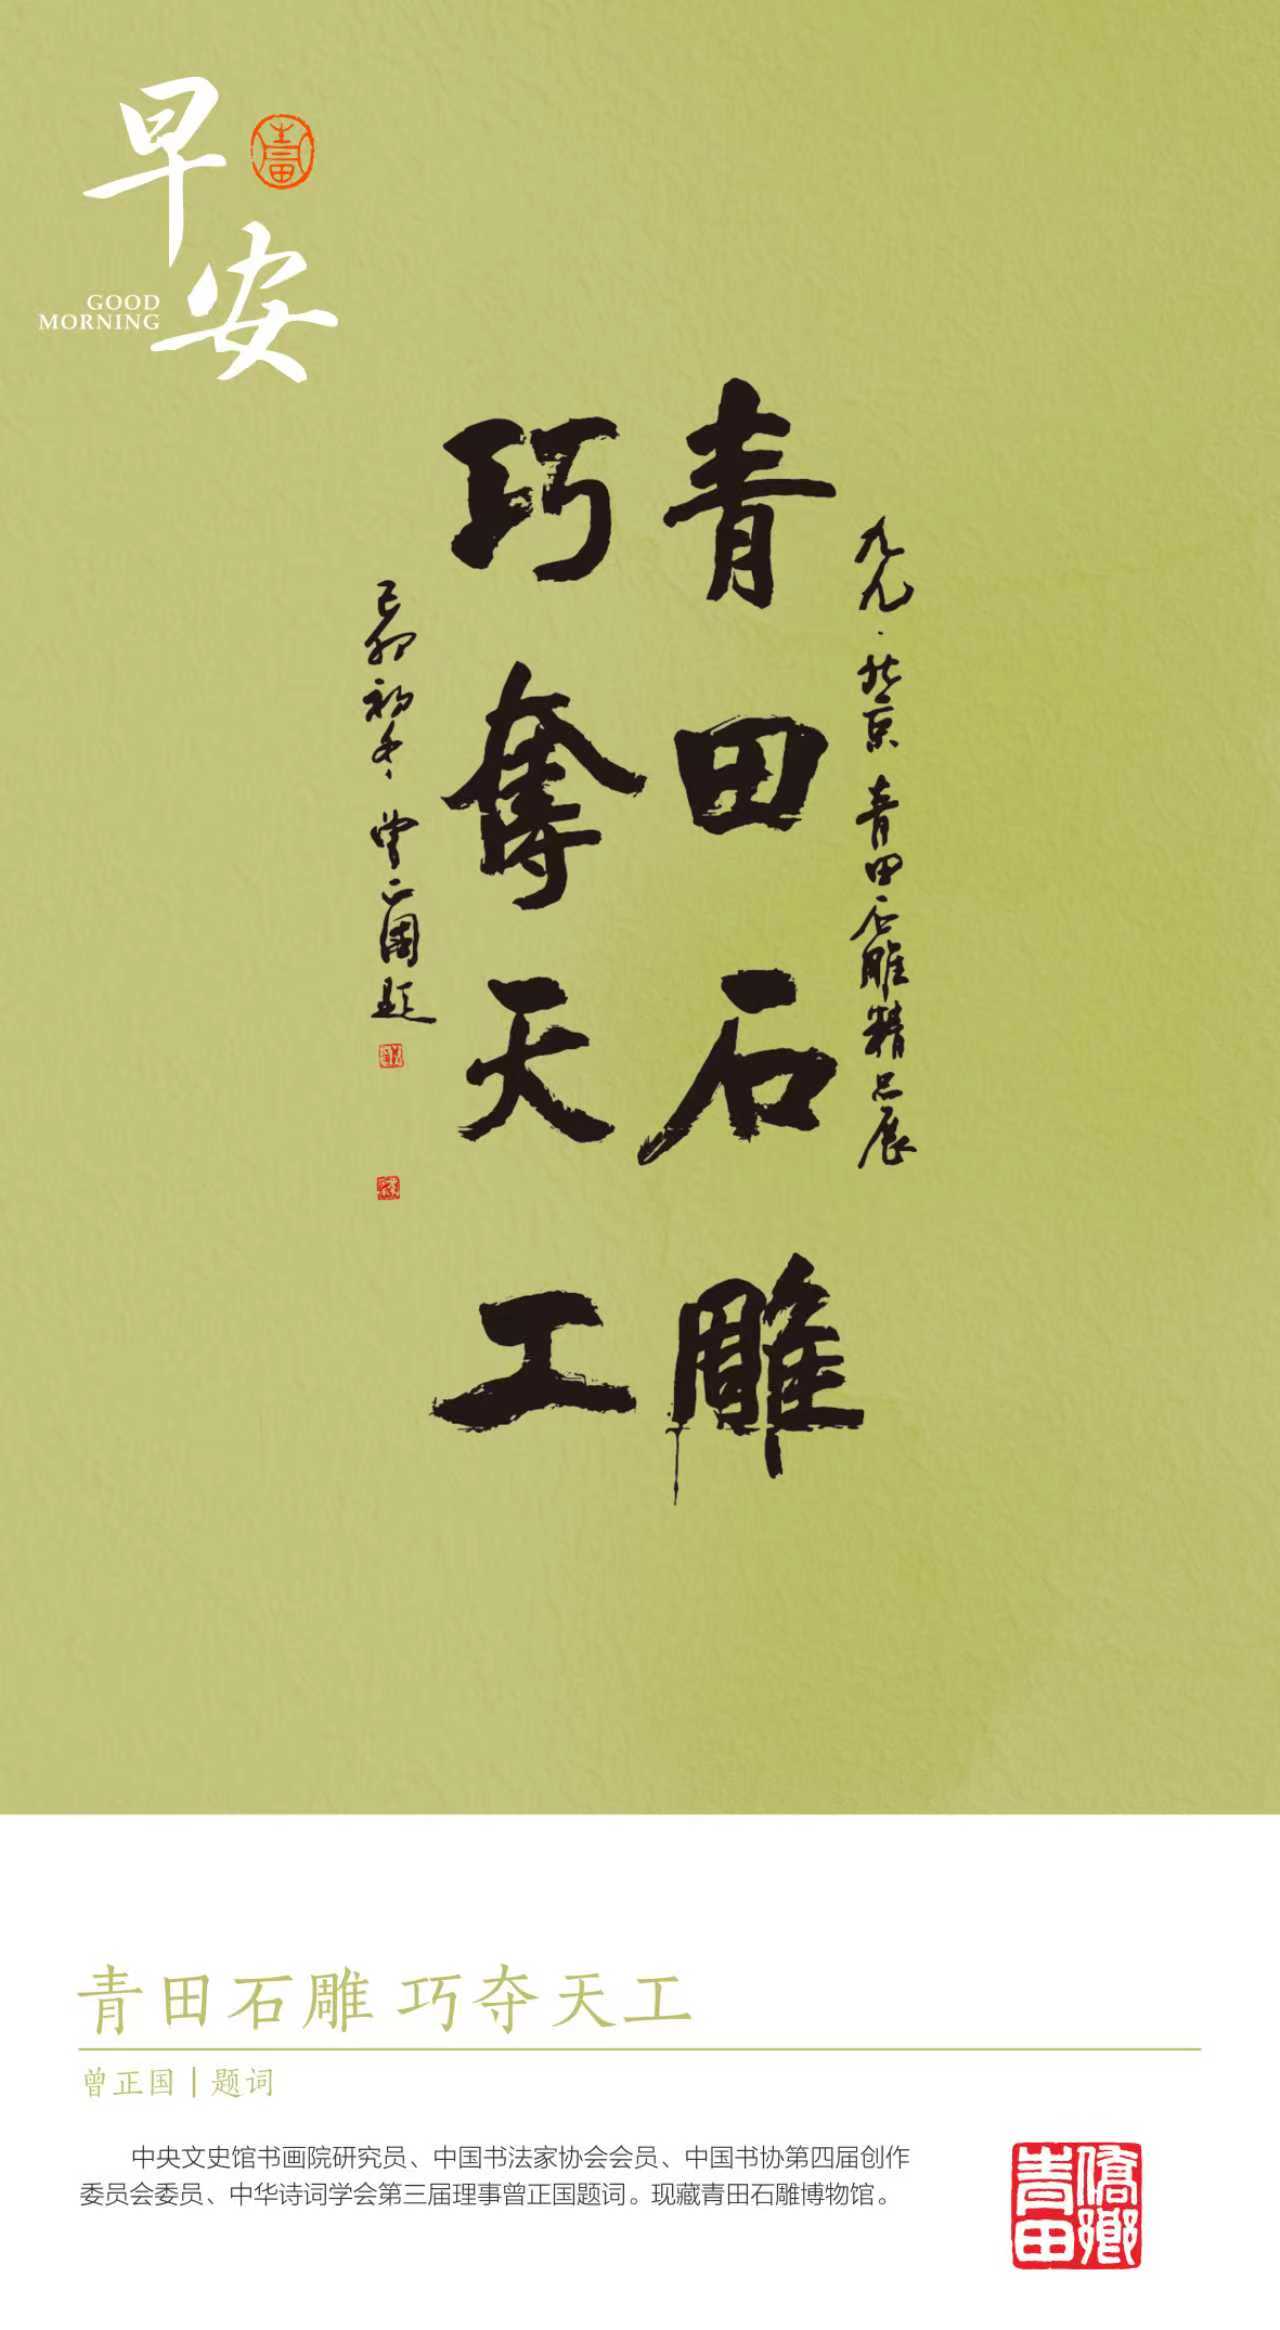 早安
GOOD
MORNING
九九·北京 青田石雕精品展
青田石雕
巧奪天工
己卯初冬 曾正國題
青田石雕 巧夺天工
曾正国 | 题词
中央文史馆书画院研究员、中国书法家协会会员、中国书协第四届创作
委员会委员、中华诗词学会第三届理事曾正国题词。现藏青田石雕博物馆。
僑鄉
青田